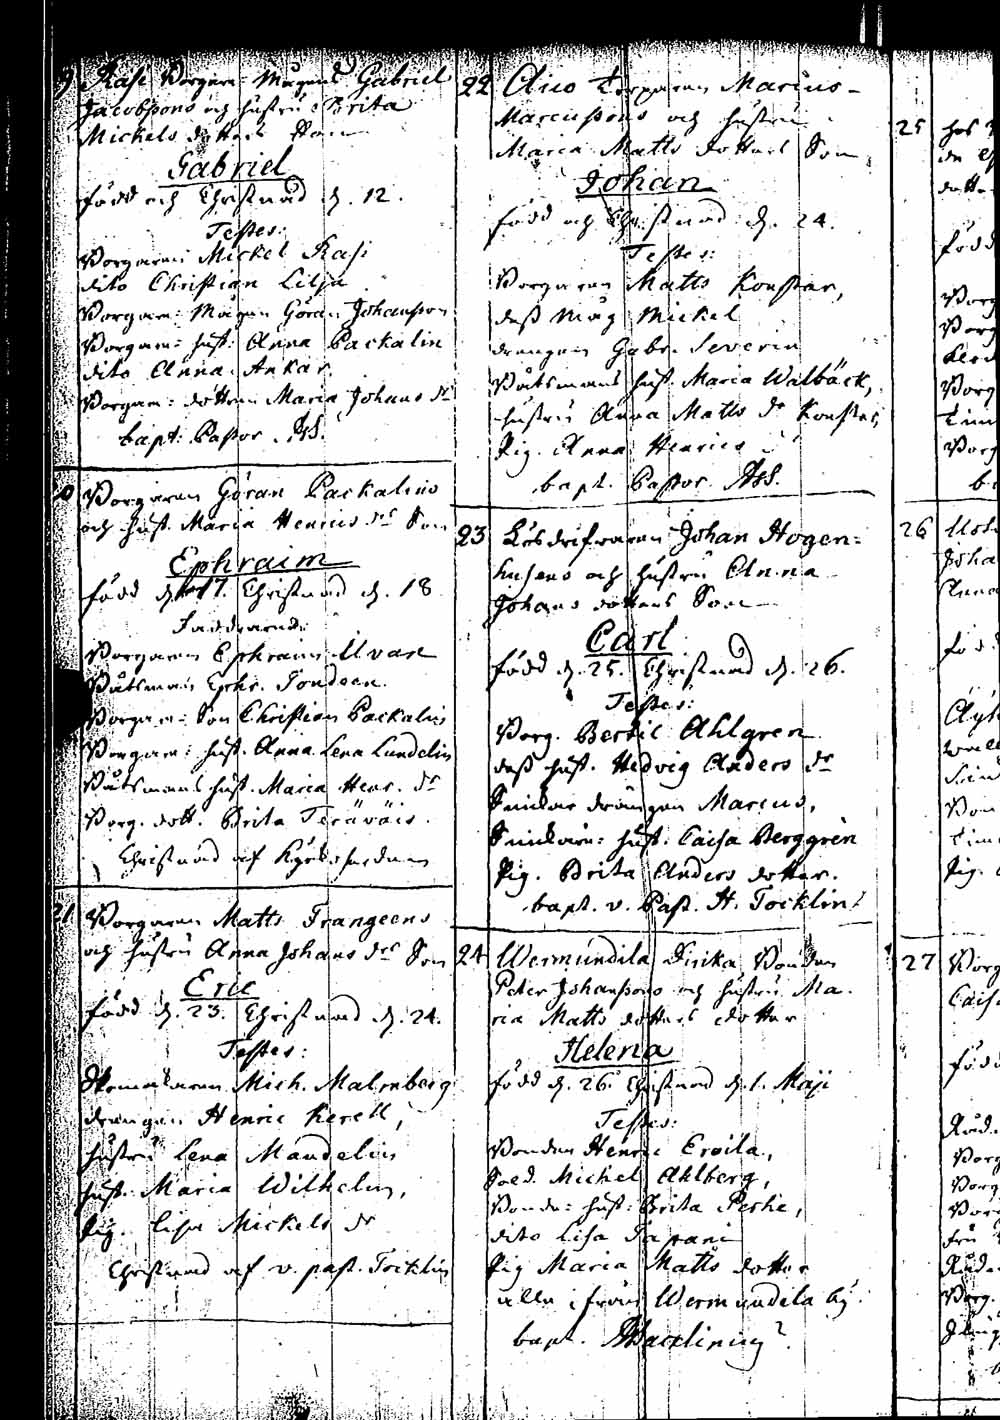 9 Kasi Borgare Mågens Gabriel
Jacobssons och hustru Brita
Mickels dotters Son
Gabriel
född och Christnad d. 12.
Testes:
Borgaren Mickel Kasi
dito Christian Lilja
Borgare: Mågen Göran Johansson
Borgare: hust. Anna Packalin
dito Anna Ankar
Borgare: dottren Maria Johans dr
bapt: Pastor Ass.
20 Borgaren Göran Packalins
och hust. Maria Henrics drs Son
Ephraim
född d. 17. Christnad d. 18
Faddrarne:
Borgaren Ephraim Uvar
Båtsman Ephr. Tondeen
Borgare: Son Christian Packalin
Borgare: hust. Anna Lena Lundelin
Båtsmans hust. Maria Henr. dr
Borg. dott. Brita Teräväis.
Christnad af Kyrkoherden
21 Borgaren Matts Trangeens
och hustru Anna Johans drs Son
Eric
född d. 23. Christnad d. 24.
Testes:
Skomakaren Mich. Malmberg
drängen Henric Kerell,
hustru Lena Mandelin
hust. Maria Wilhelm,
Pig. Lisa Mickels dr
Christnad af v. past. Tocklin
22 Torparen Marcus
Marcussons och hustru
Maria Matts dotters Son
Johan
född och Christnad d. 24.
Testes:
Borgaren Matts Konstar,
dess Måg Mickel
drängen Gabr. Severin
Båtsmans hust. Maria Walbäck,
hustru Anna Matts dr Konstar,
Pig. Anna Henrics
bapt. Pastor Ass.
23 Lösdrifvaren Johan Hogen=
husens och hustru Anna
Johans dotters Son
Carl
född d. 25. Christnad d. 26.
Testes:
Borg. Bertil Ahlgren
dess hust. Hedvig Anders dr
Snickar drängen Marcus,
Snickare: hust. Caisa Berggrèn
Pig. Brita Anders dotter.
bapt. v. Past. H. Tocklin
24 Wermundila Dirika Bonden
Peter Johanssons och hustru Ma=
ria Matts dotters dotter
Helena
född d. 26. Christnad d. 1. Maji
Testes:
Bonden Henric Eroila,
Sold. Michel Ahlberg,
Bonde: hust: Brita Perhe,
dito Lisa Tapani
Pig Maria Matts dotter
alla ifrån Wermundela by.
bapt.
25 hos
dotte
född
Borg
Borg
Borg
Borg
26
Joha
Anna
27 Borg
Caisa
född
Borg
Borg